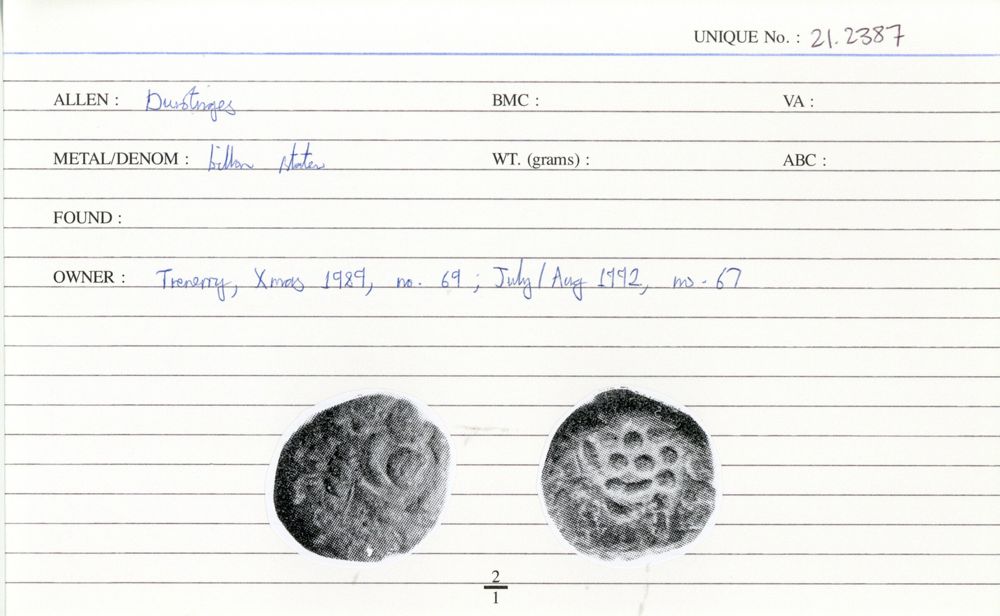 UNIQUE No. : 21.2387
ALLEN : Durotriges BMC : VA :
METAL/DENOM : billon stater WT. (grams) : ABC :
FOUND :
OWNER : Trenerry, Xmas 1989, no. 69 ; July/Aug 1992, no. 67
2
1